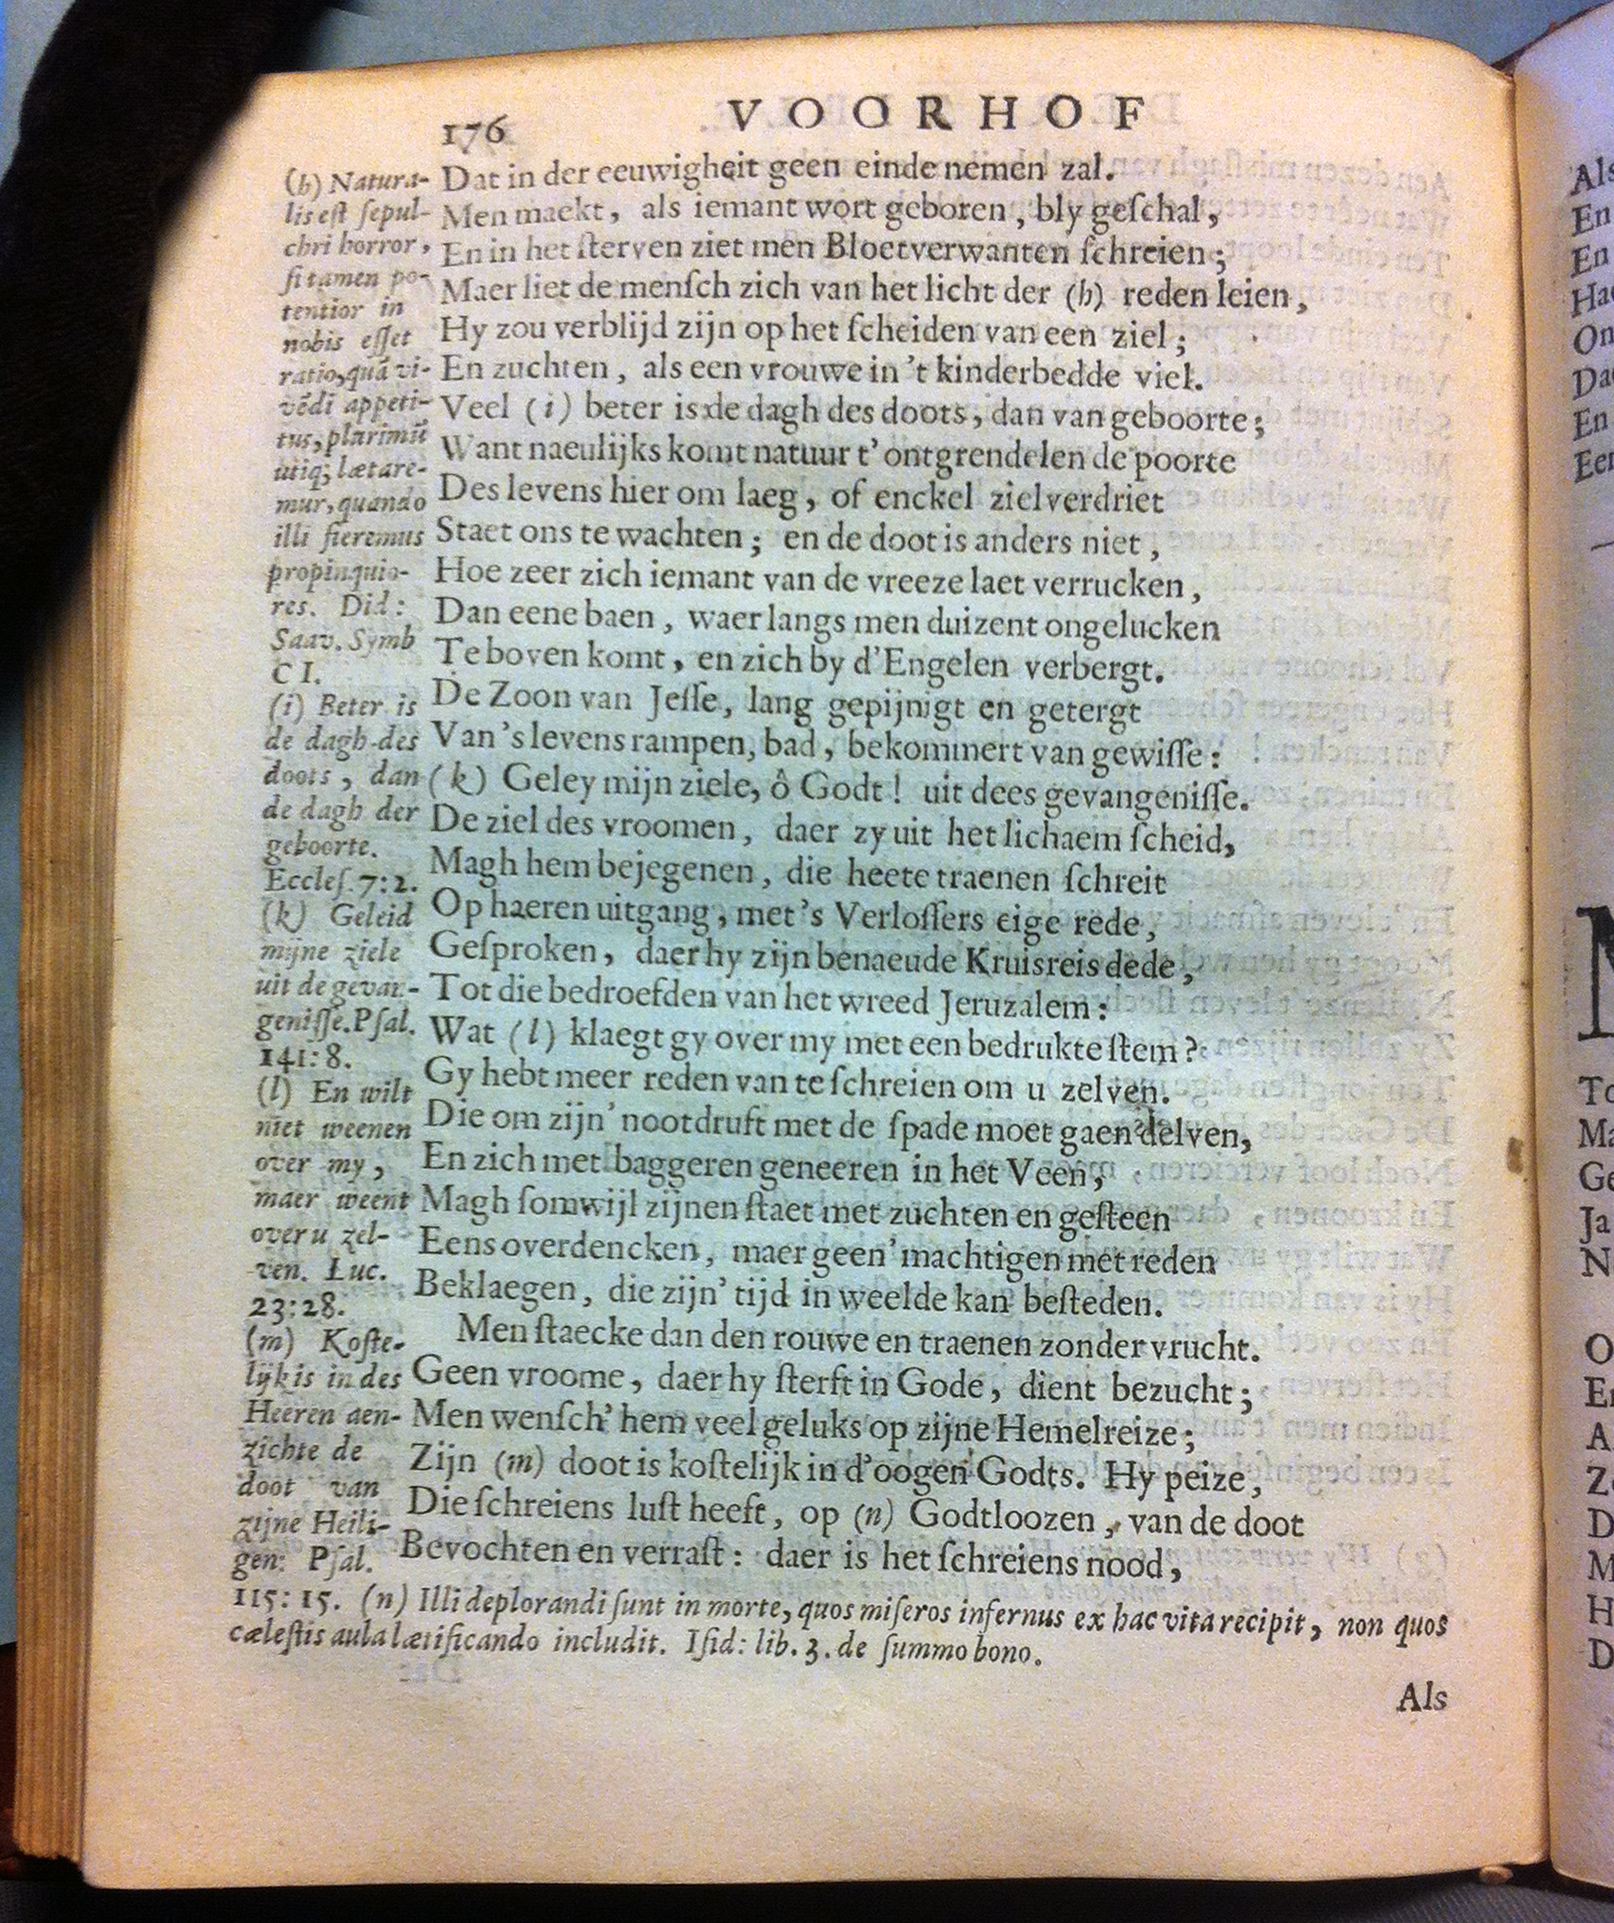 176
VOORHOF
Dat in der eeuwigheit geen einde nemen zal.
Men maekt, als iemant wort geboren, bly geſchal,
En in het ſterven ziet men Bloetverwanten ſchreien;
Maer liet de menſch zich van het licht der (h) reden leien,
Hy zou verblijd zijn op het ſcheiden van een ziel;
En zuchten, als een vrouwe in 't kinderbedde viel.
Veel (i) beter is de dagh des doots, dan van geboorte;
Want naeulijks komt natuur t'ontgrendelen de poorte
Des levens hier om laeg, of enckel zielverdriet
Staet ons te wachten; en de doot is anders niet,
Hoe zeer zich iemant van de vreeze laet verrucken,
Dan eene baen, waer langs men duizent ongelucken
Te boven komt, en zich by d'Engelen verbergt.
De Zoon van Jeſſe, lang gepijnigt en getergt
Van 's levens rampen, bad, bekommert van gewiſſe:
(k) Geley mijn ziele, ô Godt! uit dees gevangeniſſe.
De ziel des vroomen, daer zy uit het lichaem ſcheid,
Magh hem bejegenen, die heete traenen ſchreit
Op haeren uitgang, met 's Verloſſers eige rede,
Geſproken, daer hy zijn benaeude Kruisreis dede,
Tot die bedroefden van het wreed Jeruzalem:
Wat (l) klaegt gy over my met een bedrukte ſtem?
Gy hebt meer reden van te ſchreien om u zelven.
Die om zijn' nootdruft met de ſpade moet gaen delven,
En zich met baggeren geneeren in het Veen,
Magh ſomwijl zijnen ſtaet met zuchten en geſteen
Eens overdencken, maer geen' machtigen met reden
Beklaegen, die zijn' tijd in weelde kan beſteden.
Men ſtaecke dan den rouwe en traenen zonder vrucht.
Geen vroome, daer hy ſterft in Gode, dient bezucht;
Men wenſch' hem veel geluks op zijne Hemelreize;
Zijn (m) doot is koſtelijk in d'oogen Godts. Hy peize,
Die ſchreiens luſt heeft, op (n) Godtloozen, van de doot
Bevochten en verraſt: daer is het ſchreiens nood,
(h) Natura-
lis eſt ſepul-
chri horror,
ſi tamen po-
tentior in
nobis eſſet
ratio, quā vi-
vēdi appeti-
tus, plurimū
utiq; lætare-
mur, quando
illi fieremus
propinquio-
res. Did:
Saav. Symb
CI.
(i) Beter is
de dagh des
doots, dan
de dagh der
geboorte.
Eccleſ. 7:2.
(k) Geleid
mijne ziele
uit de gevan-
geniſſe. Pſal.
141:8.
(l) En wilt
niet weenen
over my,
maer weent
over u zel-
ven. Luc.
23:28.
(m) Koſte-
lijk is in des
Heeren aen-
zichte de
doot van
zijne Heili-
gen: Pſal.
115:15. (n) Illi deplorandi ſunt in morte, quos miſeros infernus ex hac vita recipit, non quos
cæleſtis aula lætificando includit. Iſid: lib. 3. de ſummo bono.
Als